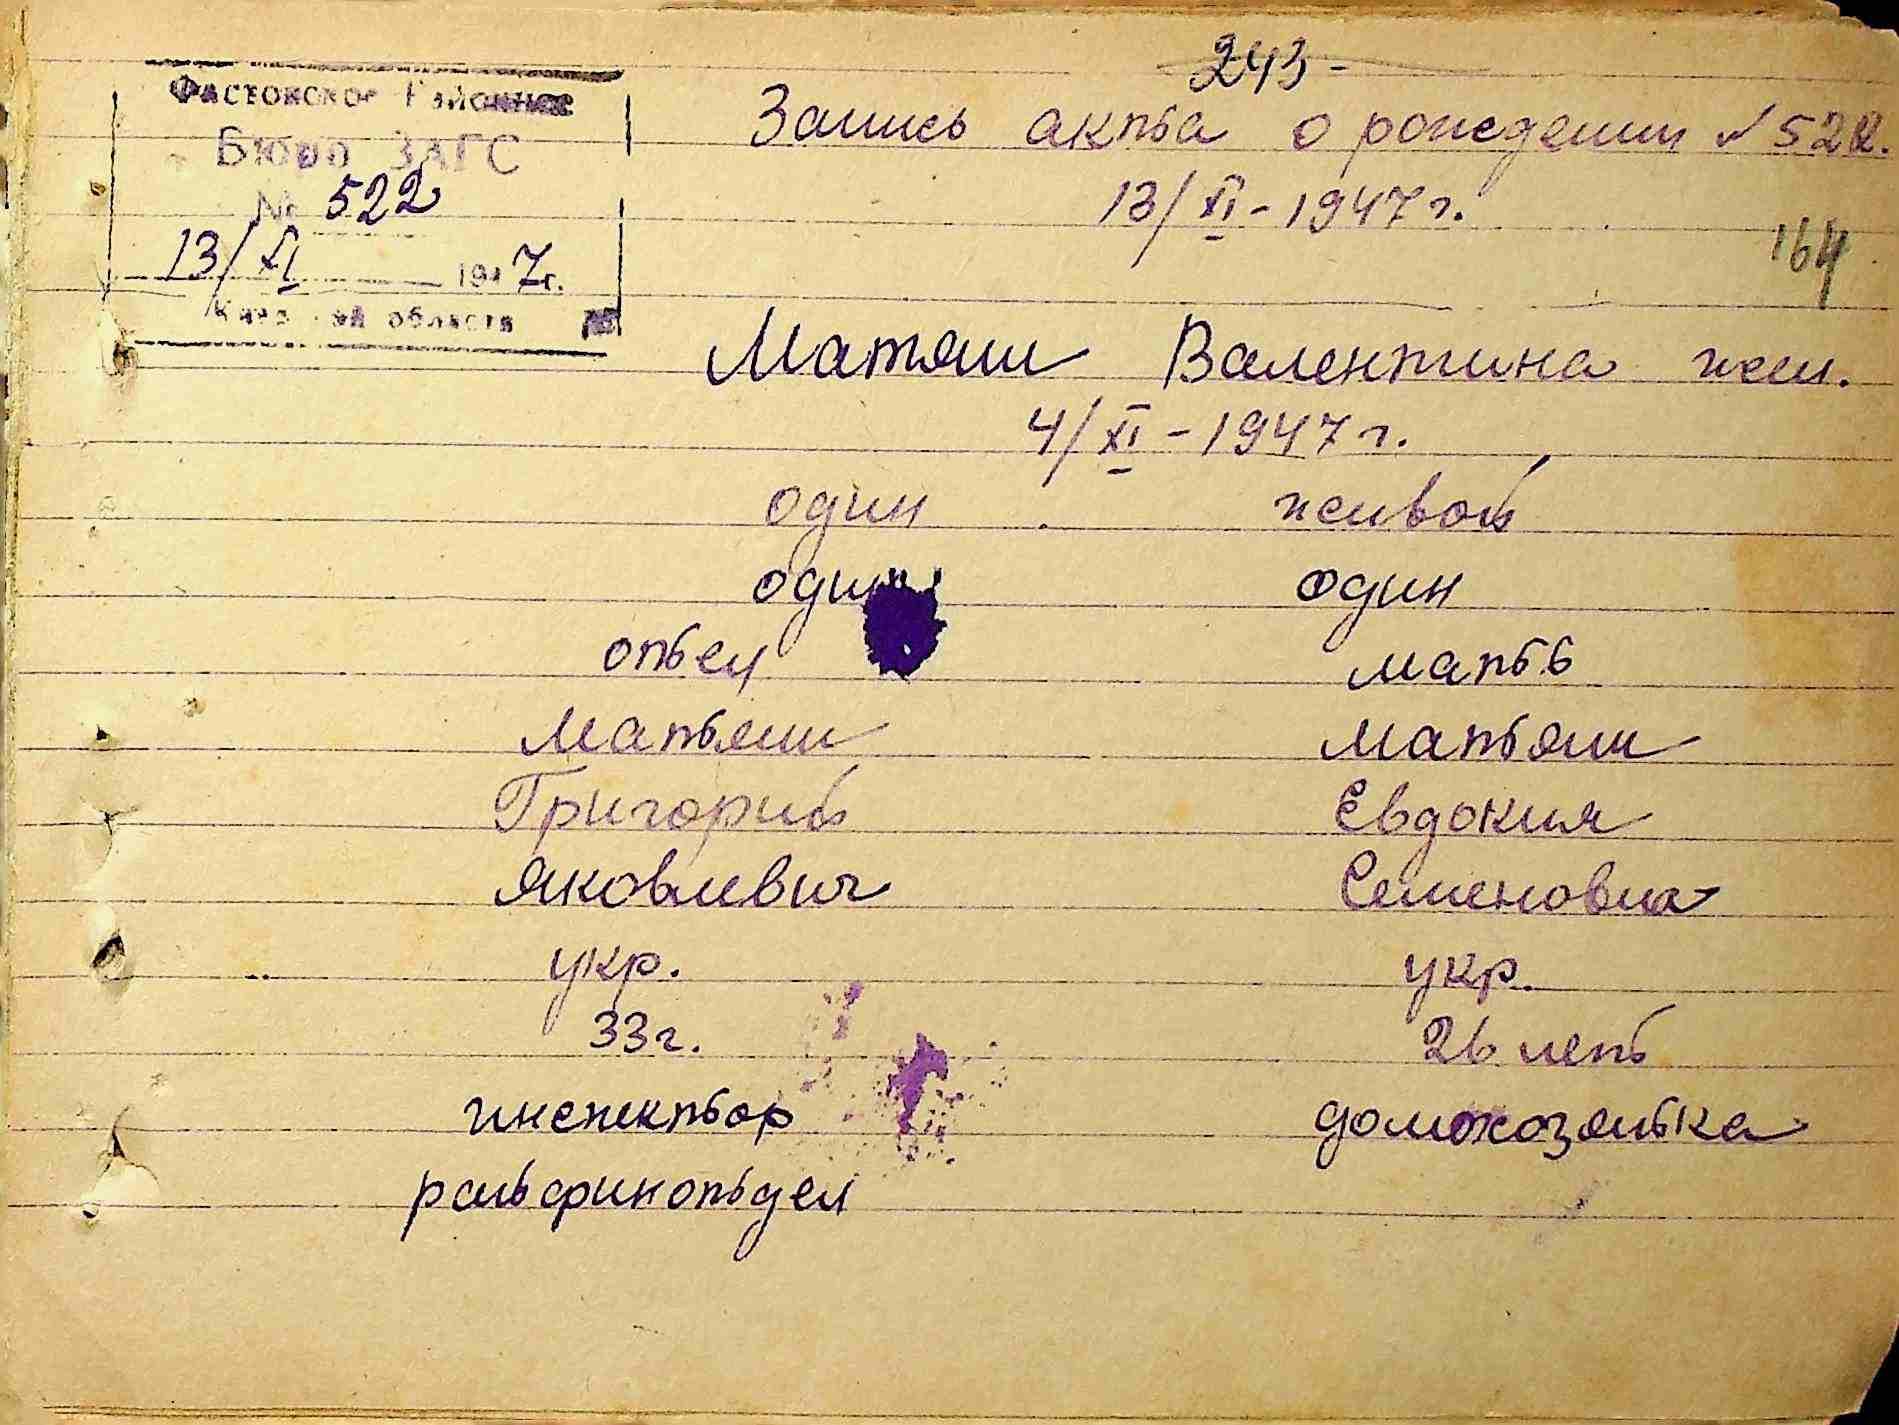 243 -
Фастовское Районное
Бюро ЗАГС
№ 522
13/XI 1947г.
Киевской области
Запись акта о рождении № 522.
13/XI - 1947 г.
164
Матяш Валентина жен.
4/XI - 1947 г.
один живой
один один
отец мать
Матяш Матяш
Григорий Евдокия
Яковлевич Семеновна
укр. укр.
33 г. 26 лет
инспектор домохозяйка
райфинотдел